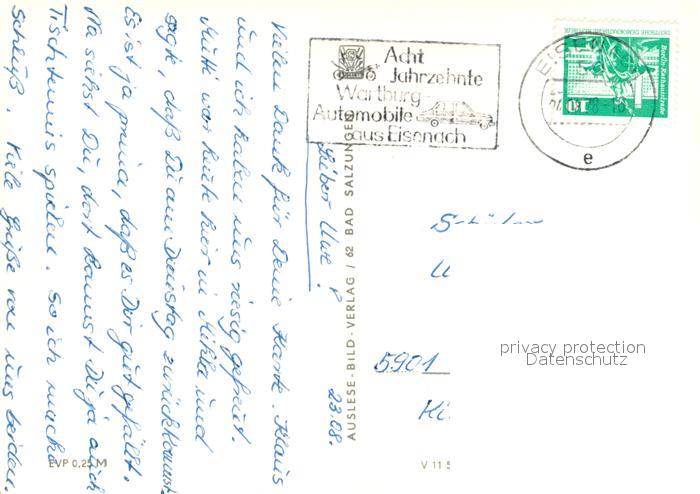 Acht
Jahrzehnte
Wartburg
Automobile
aus Eisenach
DEUTSCHE DEMOKRATISCHE
Berlin-Rathausstraße
10
e
Lieber Uwe!
23.08.
Vielen Dank für Deine Karte. Klaus
und ich haben uns riesig gefreut.
Mutti war heute hier in Mihla und
sagt, daß Du am Dienstag zurückkommst.
Es ist ja prima, daß es Dir gut gefällt.
Na siehst Du, dort kannst Du ja auch
Tischtennis spielen. So ich mache
Schluß. Viele Grüße von uns beiden.
AUSLESE-BILD-VERLAG / 62 BAD SALZUNGEN
5901
privacy protection
Datenschutz
EVP 0,25 M
V 11